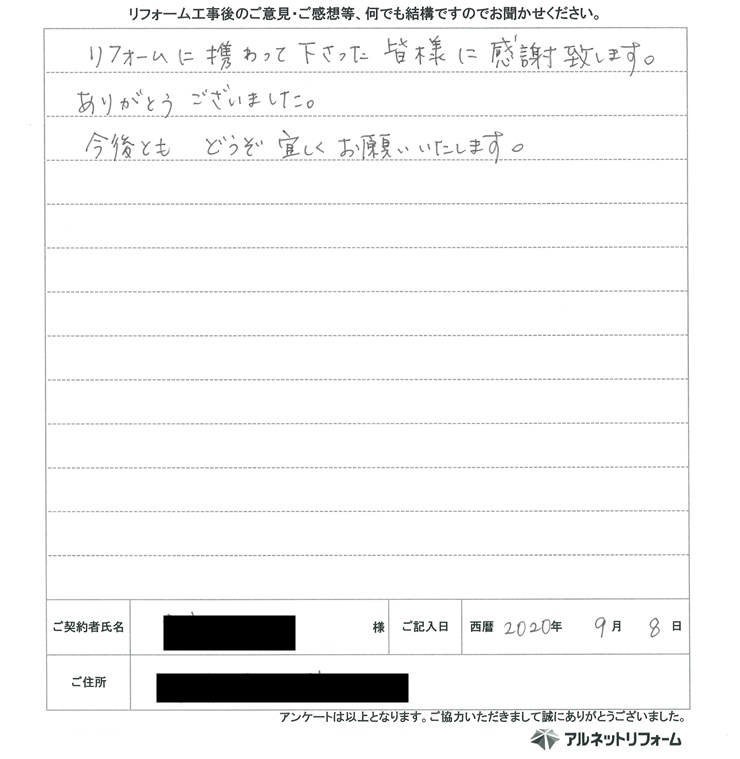 リフォーム工事後のご意見・ご感想等、何でも結構ですのでお聞かせください。
リフォームに携わって下さった皆様に感謝致します。
ありがとうございました。
今後とも どうぞ宜しくお願いいたします。
ご契約者氏名 様 ご記入日 西暦 2020年 9月 8日
ご住所
アンケートは以上となります。ご協力いただきまして誠にありがとうございました。
アルネットリフォーム